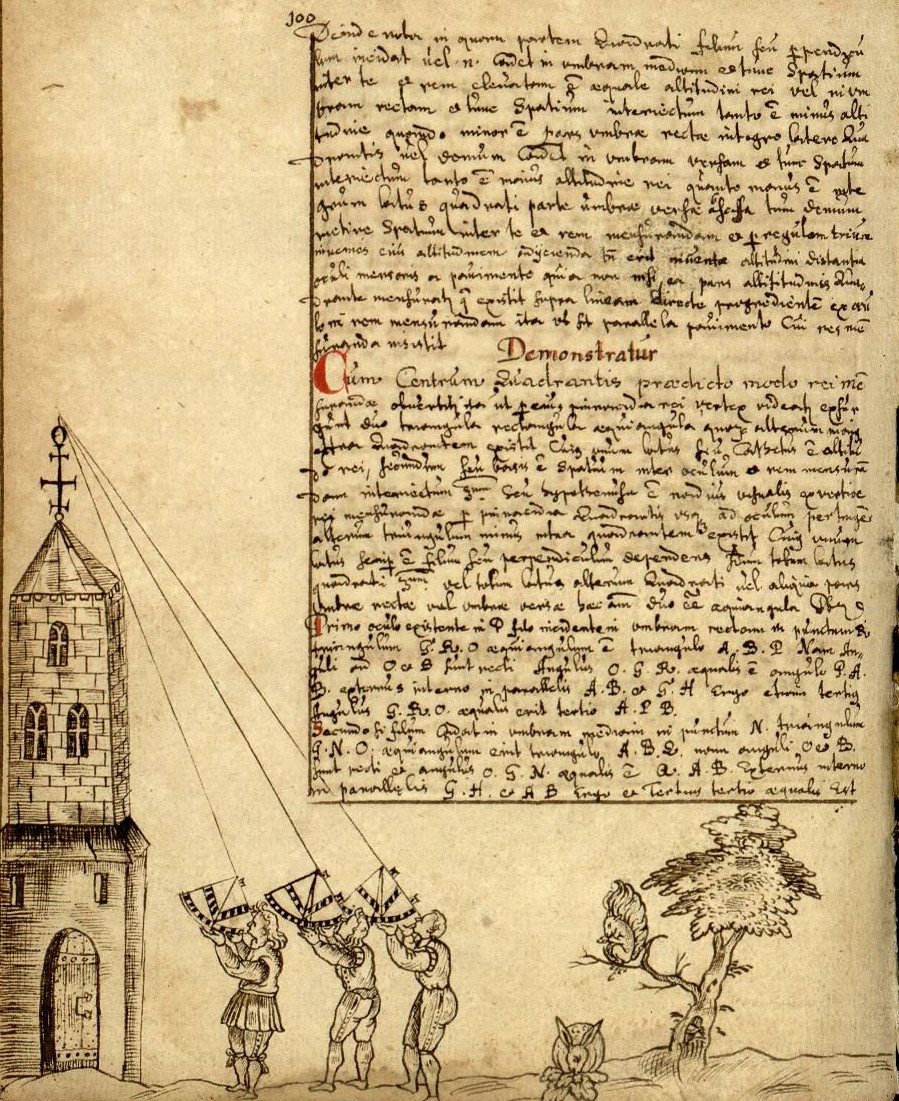 100
Deinde nota in quam partem Quadrati filum seu ppendicu
lum incidat vel n. cadet in umbram mediam et tunc Spatium
inter te et rem elevatam ē aequale altitudini rei vel in um
bram rectam et tunc Spatium interiectum tanto ē minus alti
tudine quando minor ē pars umbrae rectae integro latere Qua
drantis vel demum cadet in umbram versam et tunc Spatium
interiectum tanto ē maius altitudine rei quanto maius ē inte
grum latus quadrati parte umbrae versae tum demum
metire Spatium inter te et rem mensurandam et p regulam trium
invenies eius altitudinem adijcienda tn̄ erit inventae altitudini distantia
oculi mensoris a pavimento quia non nisi ea pars altitudinis Qua
drante mensuratur q existit supra lineam directe progredientē ex ocu
lo in rem mensurandam ita ut sit parallela pavimento Cui res mē
suranda insistit
Demonstratur
Cum Centrum Quadrantis praedicto modo rei mē
surandae obvertitur ut p eius pinnacidia rei vertex videatur exsur
gunt duo triangula rectangula aequiangula quorum alterum maius
extra Quadrantem existit Cuius unum latus seu Cathetus ē altitu
do rei, secundum seu basis ē Spatium inter oculum et rem mensurā
dam interiectum seu hypothenusa ē radius visualis ex vertice
rei mensurandae p pinnacidia Quadrantis usq ad oculum pertingēs
alterum triangulum minus intra quadrantem existit Cuius unum
latus ē filum seu perpendiculum dependens totum latus
quadrati vel totum latus alterum Quadrati vel aliqua pars
umbrae rectae vel umbrae versae haec duo ēē aequiangula
Primo oculo existente in P filo incidente in umbram rectam in punctum R.
triangulum G. R. O aequiangulum ē triangulo A. B. P Nam An
guli ad O et B sunt recti Angulus O. G. R. aequalis ē angulo P. A.
B. externus interno in parallelis A. B. et G. H Ergo etiam tertius
Angulus G. R. O. aequalis erit tertio A. P B.
Secundo si filum Cadat in umbram mediam in punctum N. triangulum
G. N. O. aequiangulum erit triangulo A. B. Q. nam anguli O et B.
sunt recti et angulus O. G. N. aequalis ē Q. A. B. Externus interno
in parallelis G. H. et A B Ergo et Tertius tertio aequalis Est